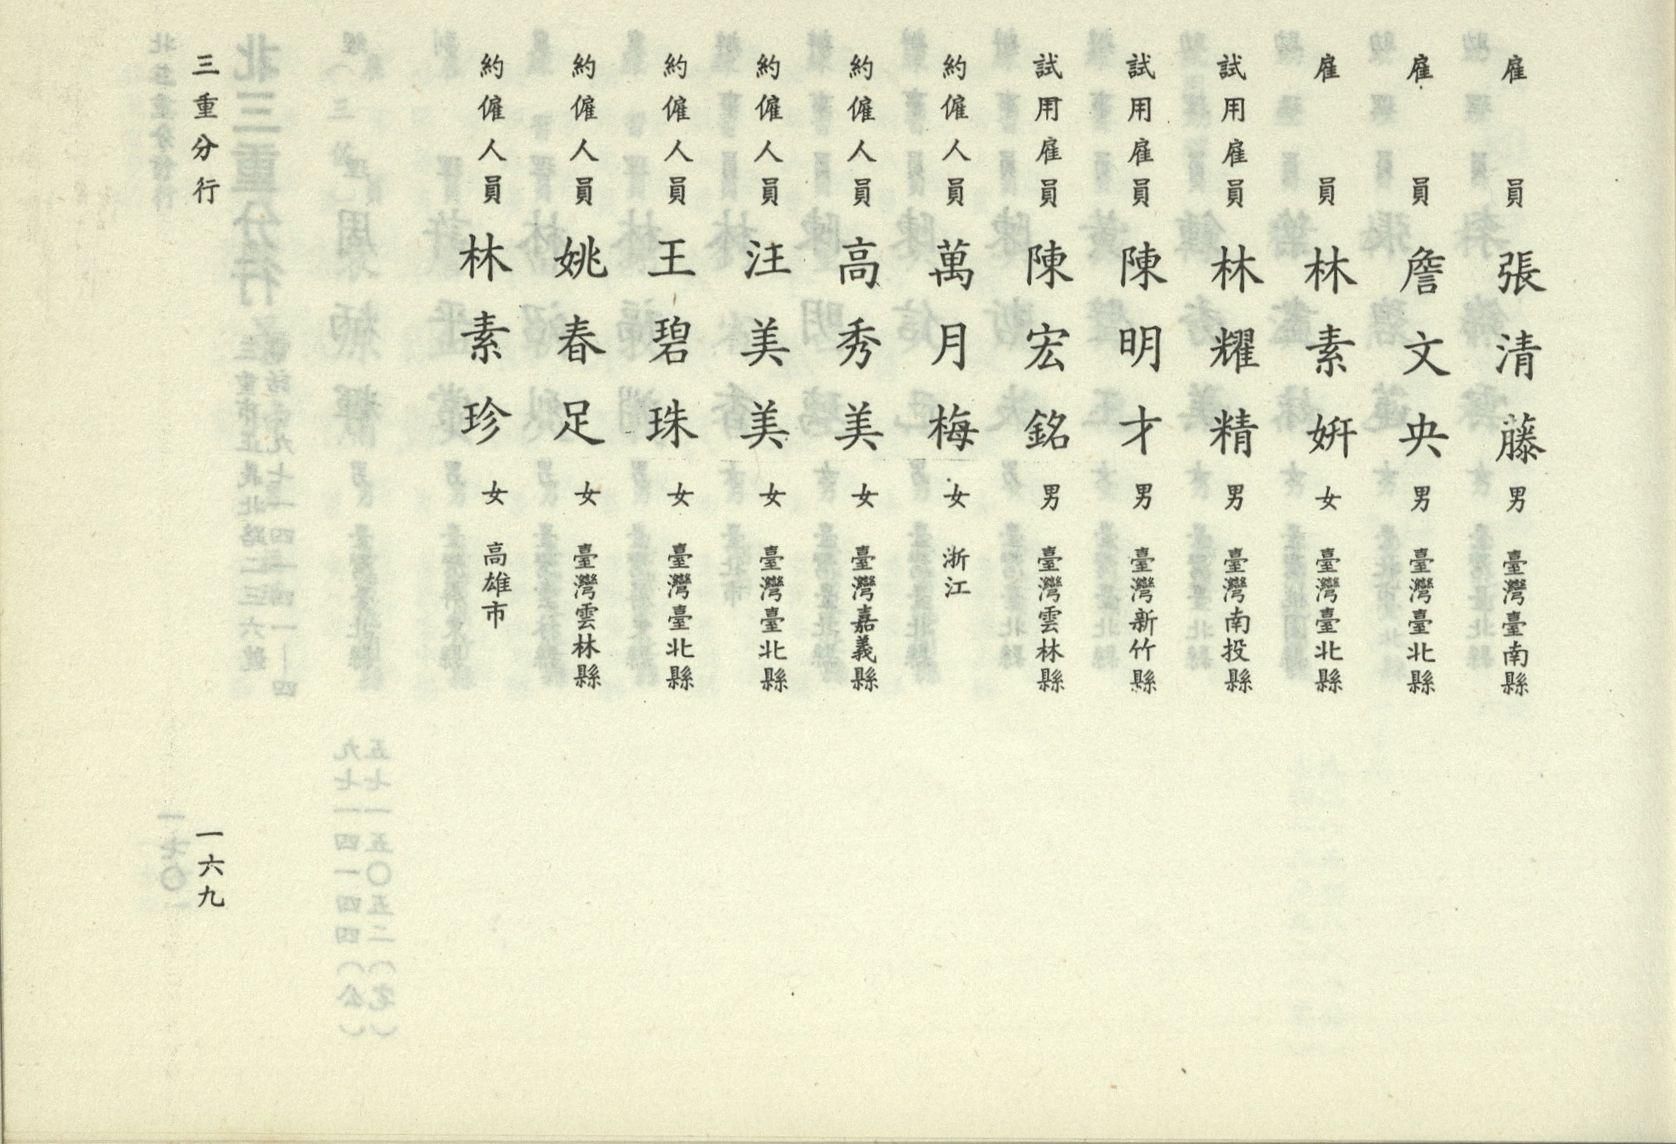 雇員 張清藤 男 臺灣臺南縣
雇員 詹文央 男 臺灣臺北縣
雇員 林素姸 女 臺灣臺北縣
試用雇員 林耀精 男 臺灣南投縣
試用雇員 陳明才 男 臺灣新竹縣
試用雇員 陳宏銘 男 臺灣雲林縣
約僱人員 萬月梅 女 浙江
約僱人員 高秀美 女 臺灣嘉義縣
約僱人員 汪美美 女 臺灣臺北縣
約僱人員 王碧珠 女 臺灣臺北縣
約僱人員 姚春足 女 臺灣雲林縣
約僱人員 林素珍 女 高雄市
三重分行
一六九